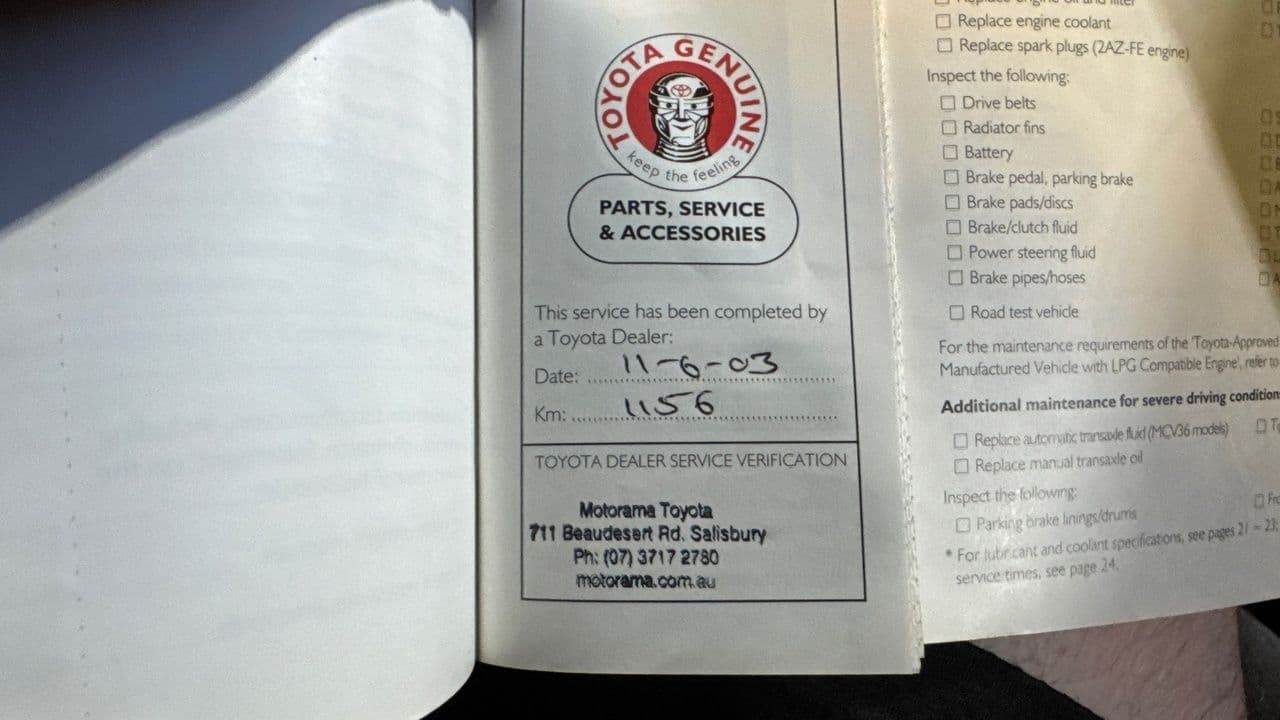 TOYOTA GENUINE
keep the feeling
PARTS, SERVICE
& ACCESSORIES
This service has been completed by
a Toyota Dealer:
Date: 11-6-03
Km: 1156
TOYOTA DEALER SERVICE VERIFICATION
Motorama Toyota
711 Beaudesert Rd. Salisbury
Ph: (07) 3717 2780
motorama.com.au
Replace engine coolant
Replace spark plugs (2AZ-FE engine)
Inspect the following:
Drive belts
Radiator fins
Battery
Brake pedal, parking brake
Brake pads/discs
Brake/clutch fluid
Power steering fluid
Brake pipes/hoses
Road test vehicle
For the maintenance requirements of the 'Toyota-Approved
Manufactured Vehicle with LPG Compatible Engine', refer to
Additional maintenance for severe driving condition
Replace automatic transaxle fluid (MCV36 models)
Replace manual transaxle oil
Inspect the following:
Parking brake linings/drums
* For lubricant and coolant specifications, see pages 21 - 23
service times, see page 24.